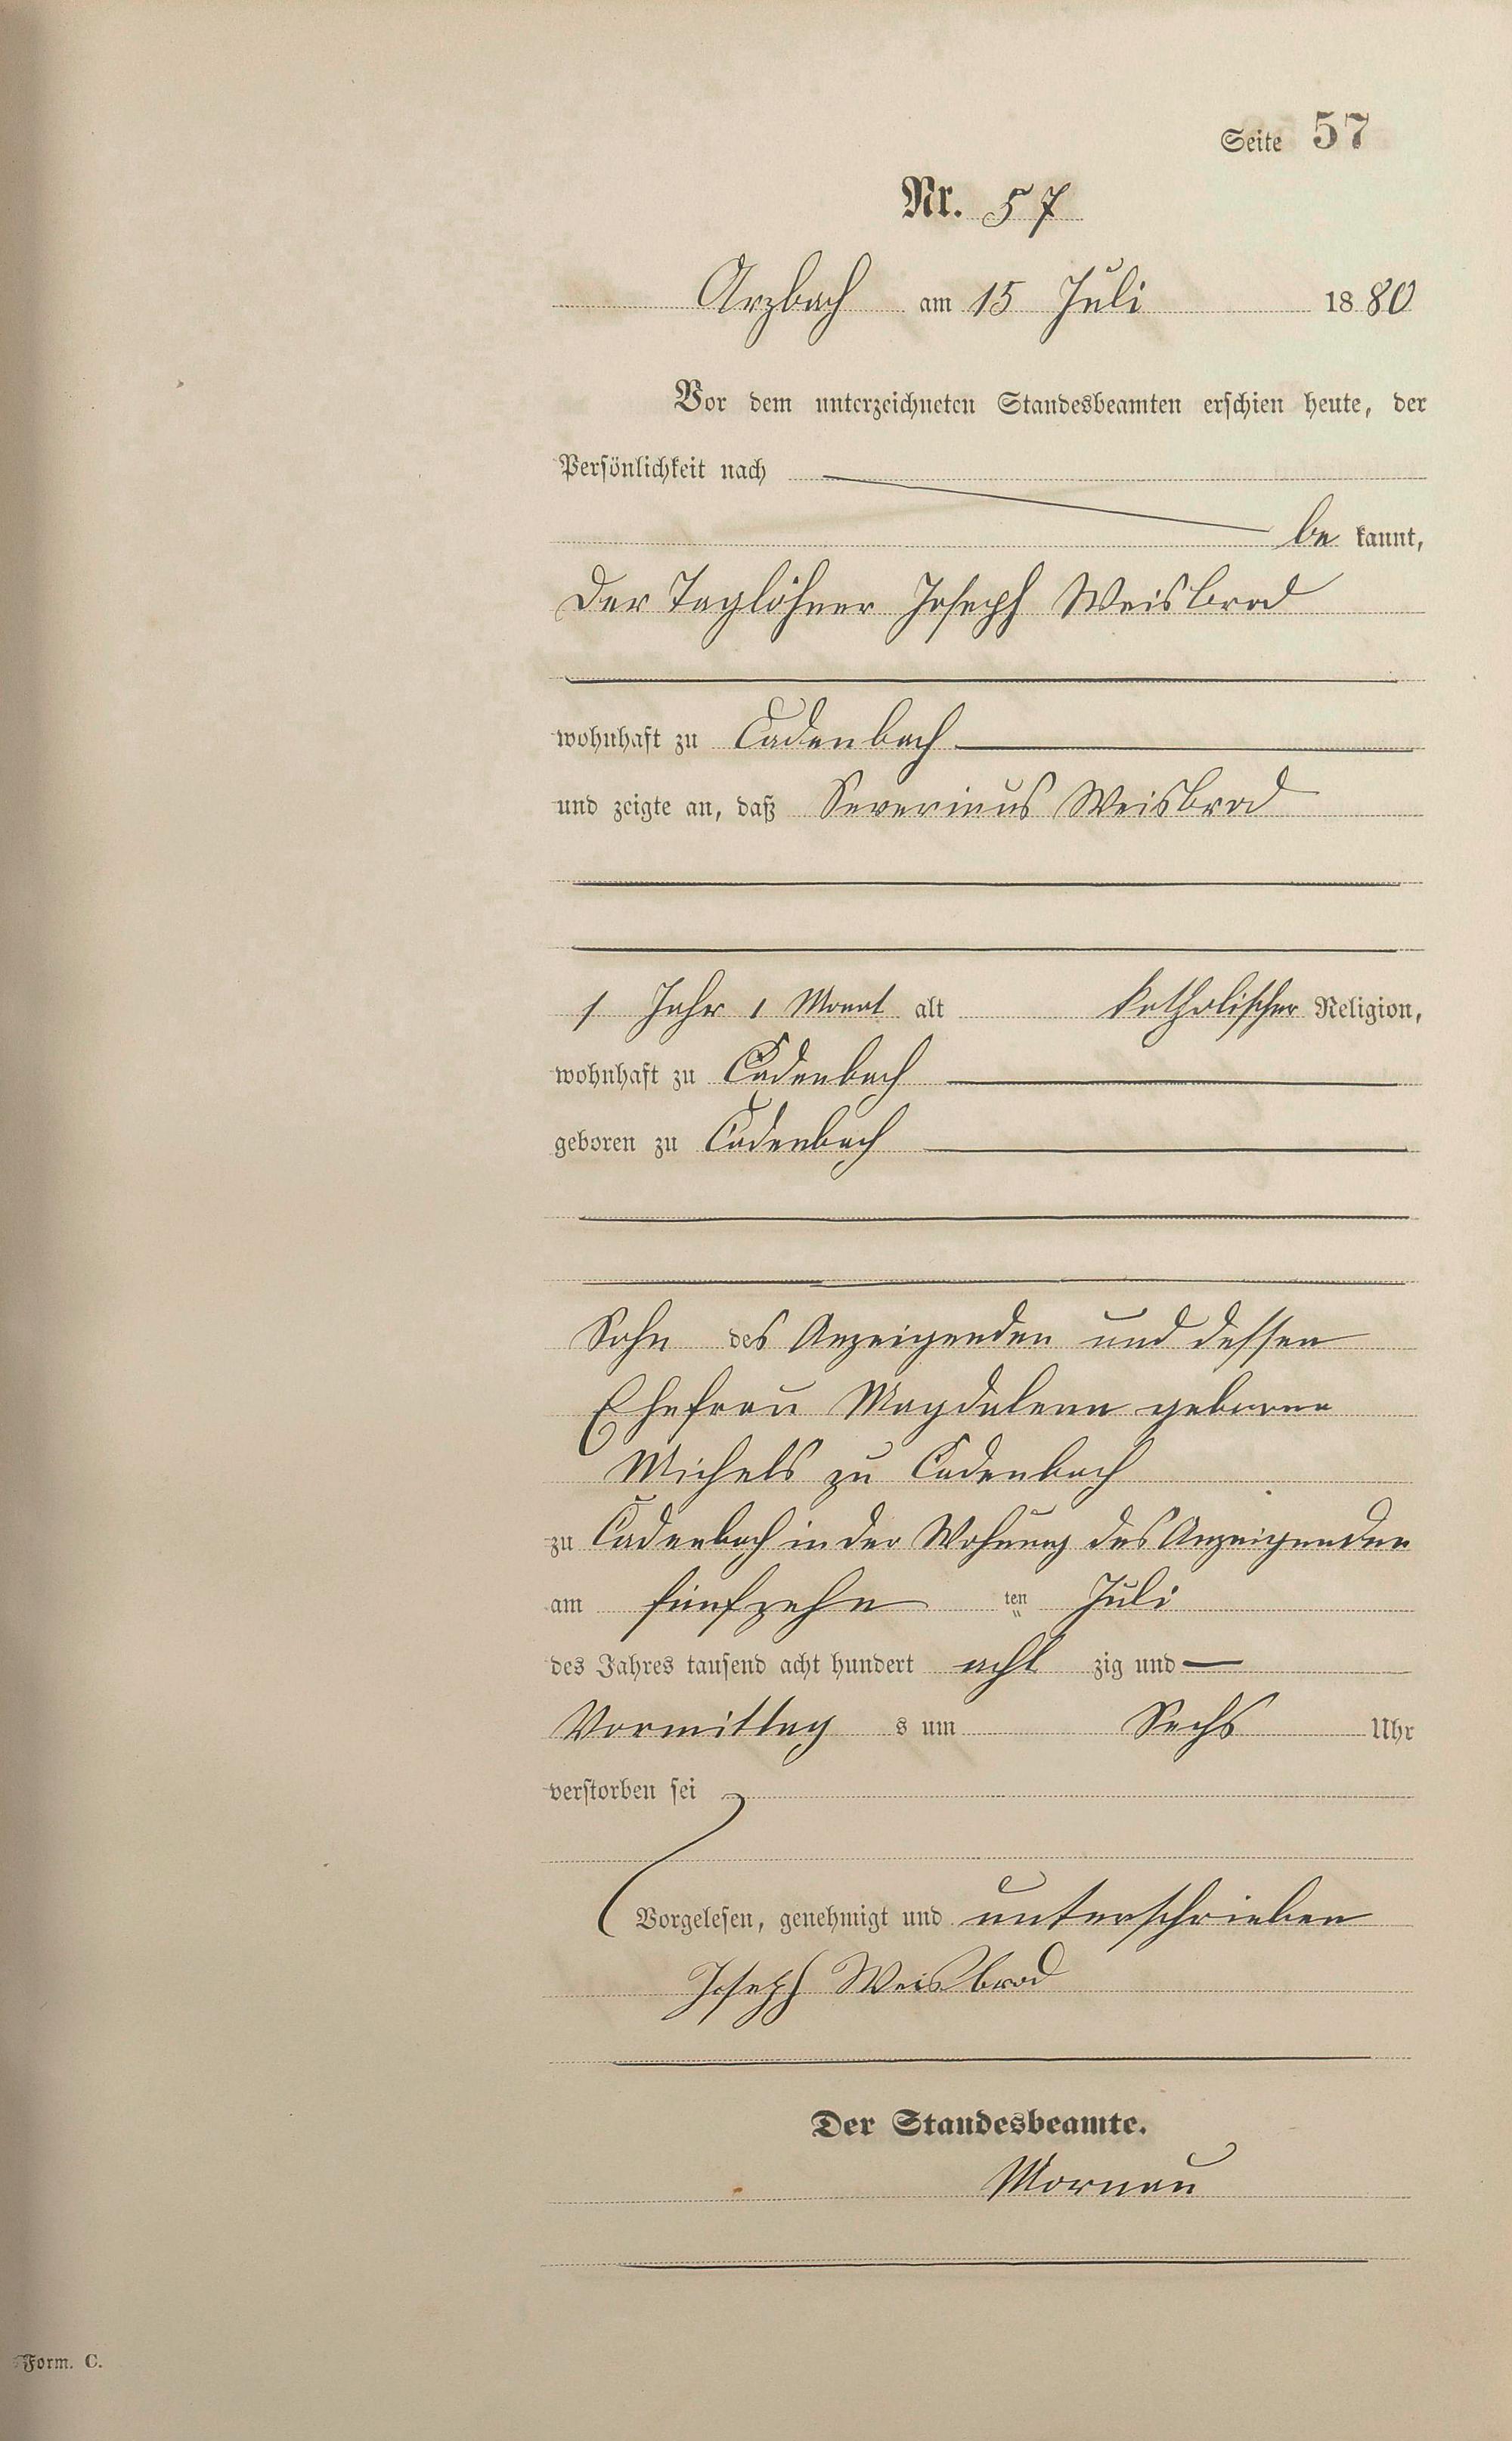 Seite 57
Nr. 57
Arzbach am 15 Juli 1880
Vor dem unterzeichneten Standesbeamten erschien heute, der
Persönlichkeit nach
be kannt,
Der Taglöhner Joseph Weisbrod
wohnhaft zu Cadenbach
und zeigte an, daß Severinus Weisbrod
1 Jahr 1 Monat alt katholischer Religion,
wohnhaft zu Cadenbach
geboren zu Cadenbach
Sohn des Anzeigenden und dessen
Ehefrau Magdalena geborne
Michels zu Cadenbach
zu Cadenbach in der Wohnung des Anzeigenden
am fünfzehn ten Juli
des Jahres tausend acht hundert acht zig und
Vormittag s um Sechs Uhr
verstorben sei
Vorgelesen, genehmigt und unterschrieben
Joseph Weisbrod
Der Standesbeamte.
Mornau
Form. C.